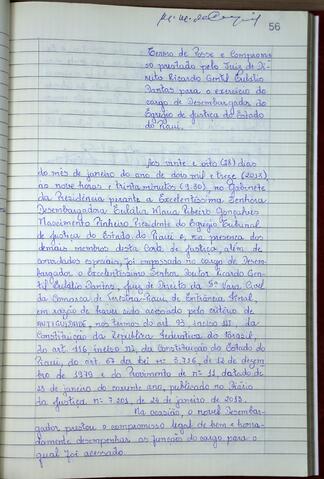 56
Termo de Posse e Compromis
so prestado pelo Juiz de Di-
reito Ricardo Gentil Eulálio
Dantas para o exercício do
cargo de Desembargador do
Egrégio de Justiça do Estado
do Piauí.
Aos vinte e oito (28) dias
do mês de janeiro do ano de dois mil e treze (2013),
às nove horas e trinta minutos (9:30), no Gabinete
da Presidência perante a Excelentíssima Senhora
Desembargadora Eulália Maria Ribeiro Gonçalves
Nascimento Pinheiro, Presidente do Egrégio Tribunal
de Justiça do Estado do Piauí e, na presença dos
demais membros desta Corte de Justiça, além de
convidados especiais, foi empossado no cargo de Desem-
bargador o Excelentíssimo Senhor Doutor Ricardo Gen-
til Eulálio Dantas, Juiz de Direito da 5ª Vara Cível
da Comarca de Teresina-Piauí de Entrância Final,
em razão de haver sido acessado pelo critério de
ANTIGUIDADE, nos termos do art. 93 inciso III, da
Constituição da República Federativa do Brasil,
do art. 116, inciso III, da Constituição do Estado do
Piauí, do art. 67 da Lei nº 3.716, de 12 de dezem
bro de 1979 e do Provimento de nº 11, datado de
23 de janeiro do corrente ano, publicado no Diário
da Justiça nº 7.201, de 24 de janeiro de 2013.
Na ocasião, o novel Desembar-
gador prestou o compromisso legal de bem e honra-
damente desempenhar as funções do cargo para o
qual foi acessado.